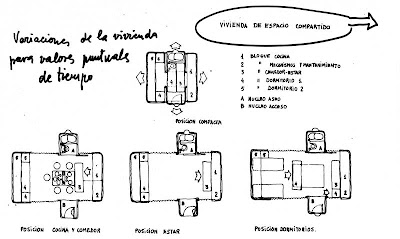 Variaciones de la vivienda
para valores puntuales
de tiempo
VIVIENDA DE ESPACIO COMPARTIDO
1 BLOQUE COCINA
2 " MECANISMOS Y MANTENIMIENTO
3 " COMEDOR-ESTAR
4 " DORMITORIO 1.
5 " DORMITORIO 2
A NUCLEO ASEO
B NUCLEO ACCESO
POSICION COMPACTA
POSICION COCINA Y COMEDOR
POSICION ESTAR
POSICION DORMITORIOS.